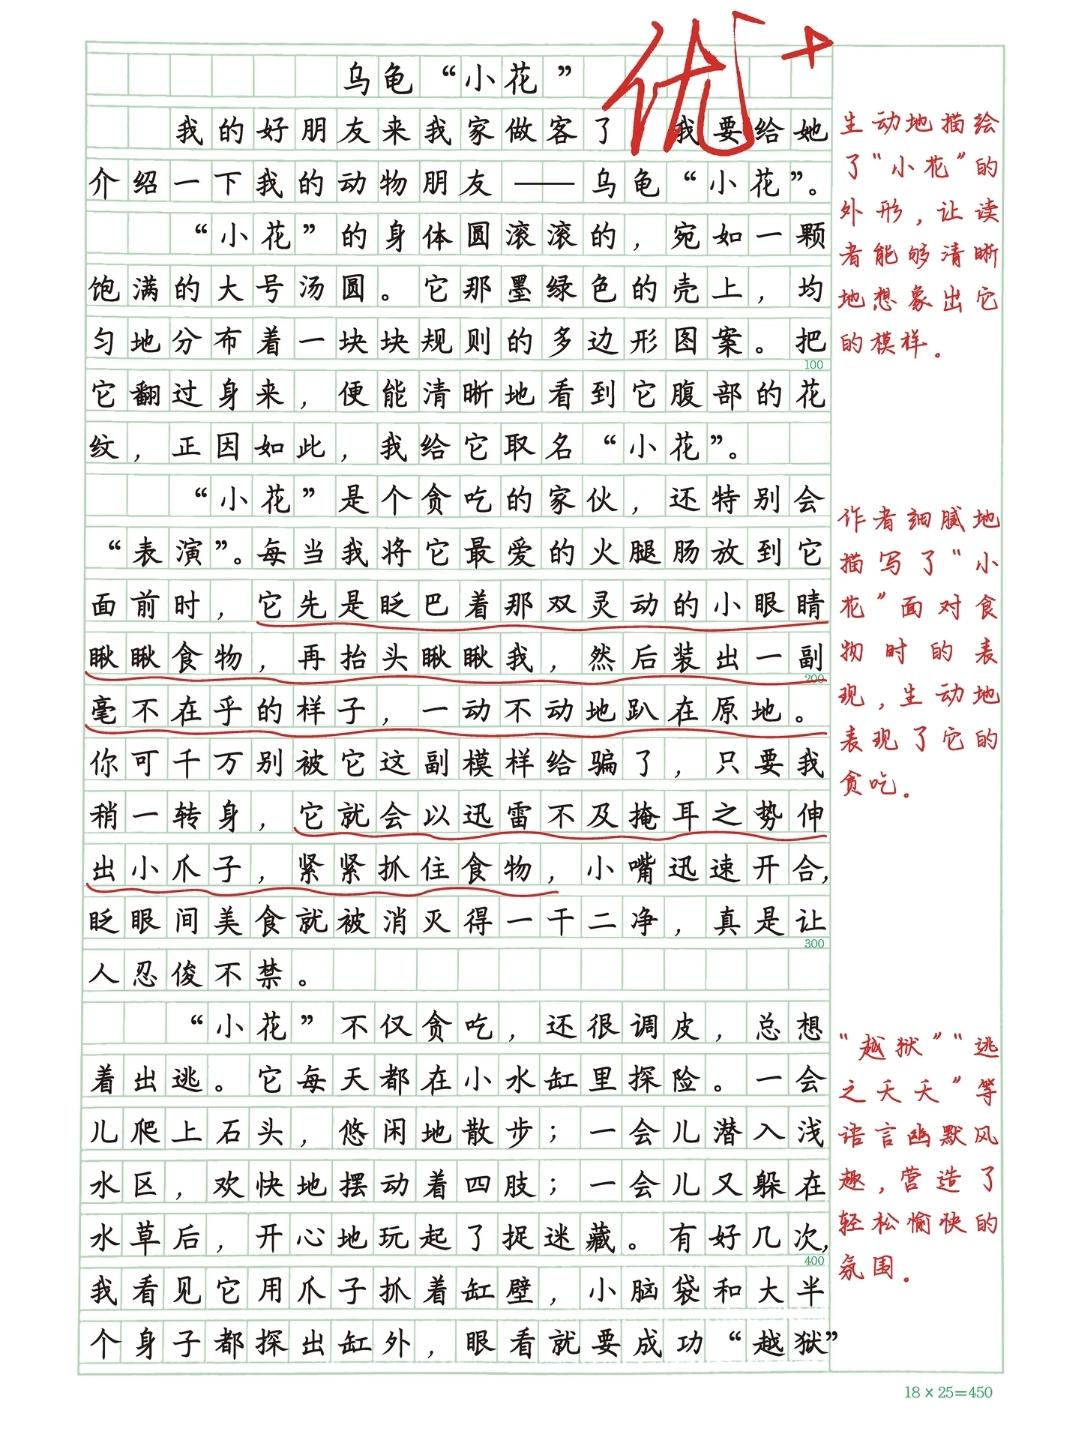 乌龟“小花”
优+
我的好朋友来我家做客了 我要给她
介绍一下我的动物朋友——乌龟“小花”。
“小花”的身体圆滚滚的，宛如一颗
饱满的大号汤圆。它那墨绿色的壳上，均
匀地分布着一块块规则的多边形图案。把
100
它翻过身来，便能清晰地看到它腹部的花
纹，正因如此，我给它取名“小花”。
“小花”是个贪吃的家伙，还特别会
“表演”。每当我将它最爱的火腿肠放到它
面前时，它先是眨巴着那双灵动的小眼睛
瞅瞅食物，再抬头瞅瞅我，然后装出一副
200
毫不在乎的样子，一动不动地趴在原地。
你可千万别被它这副模样给骗了，只要我
稍一转身，它就会以迅雷不及掩耳之势伸
出小爪子，紧紧抓住食物，小嘴迅速开合，
眨眼间美食就被消灭得一干二净，真是让
300
人忍俊不禁。
“小花”不仅贪吃，还很调皮，总想
着出逃。它每天都在小水缸里探险。一会
儿爬上石头，悠闲地散步；一会儿潜入浅
水区，欢快地摆动着四肢；一会儿又躲在
水草后，开心地玩起了捉迷藏。有好几次，
400
我看见它用爪子抓着缸壁，小脑袋和大半
个身子都探出缸外，眼看就要成功“越狱”
18×25=450
生动地描绘
了“小花”的
外形，让读
者能够清晰
地想象出它
的模样。
作者细腻地
描写了“小
花”面对食
物时的表
现，生动地
表现了它的
贪吃。
“越狱”“逃
之夭夭”等
语言幽默风
趣，营造了
轻松愉快的
氛围。